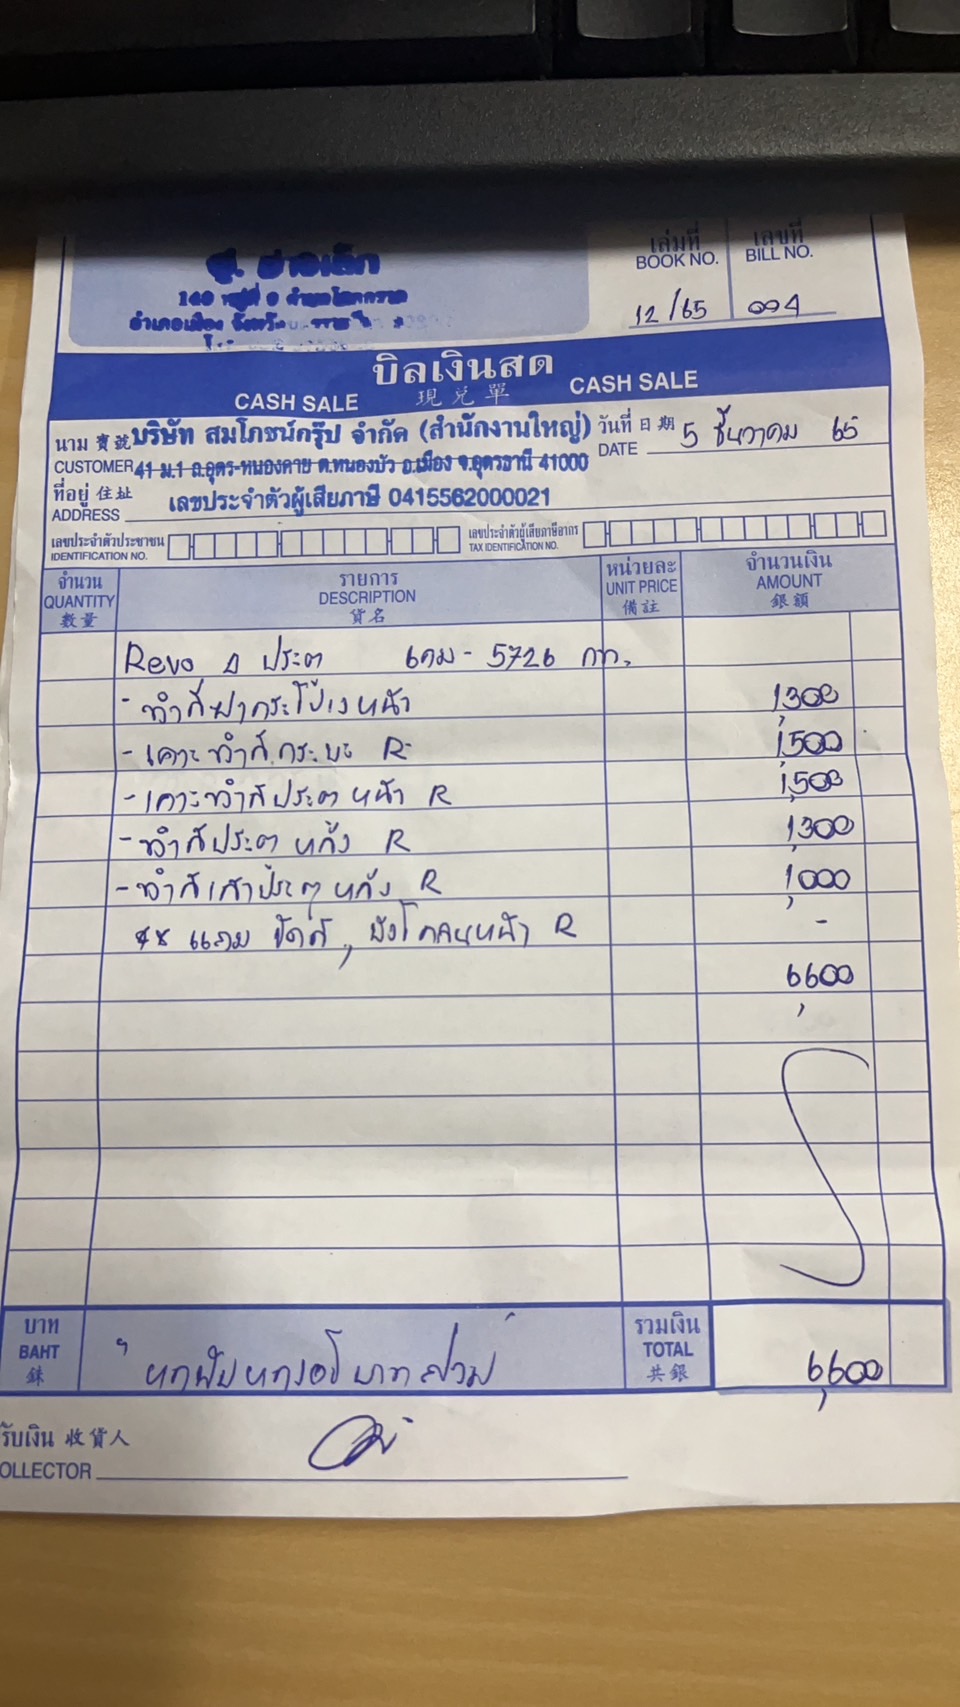 เล่มที่ เลขที่
BOOK NO. BILL NO.
12/65 004
บิลเงินสด
CASH SALE 現兌單 CASH SALE
นาม 寶號 บริษัท สมโภชน์กรุ๊ป จำกัด (สำนักงานใหญ่) วันที่ 日期 5 ธันวาคม 65
CUSTOMER 41 ม.1 ถ.อุดร-หนองคาย ต.หนองบัว อ.เมือง จ.อุดรธานี 41000 DATE
ที่อยู่ 住址 เลขประจำตัวผู้เสียภาษี 0415562000021
ADDRESS
เลขประจำตัวประชาชน เลขประจำตัวผู้เสียภาษีอากร
IDENTIFICATION NO. TAX IDENTIFICATION NO.
จำนวน รายการ หน่วยละ จำนวนเงิน
QUANTITY DESCRIPTION UNIT PRICE AMOUNT
數量 貨名 備註 銀額
Revo 4 ประตู 6กม-5726 กท.
- ทำสีฝากระโปรงหน้า 1,300
- เคาะทำสีกระบะ R 1,500
- เคาะทำสีประตูหน้า R 1,500
- ทำสีประตูหลัง R 1,300
- ทำสีเสาประตูหลัง R 1,000
** แถม ขัดสี, บังโคลนหน้า R -
6,600
บาท รวมเงิน
BAHT หกพันหกร้อยบาทถ้วน TOTAL 6,600
銖 共銀
รับเงิน 收貨人
OLLECTOR